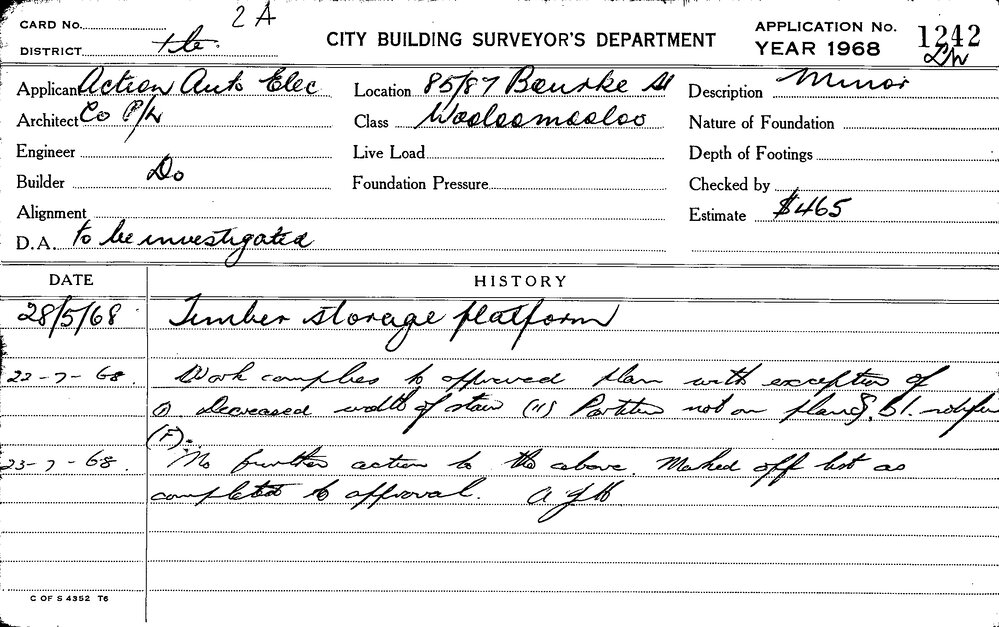 2A
CARD No.
DISTRICT
CITY BUILDING SURVEYOR'S DEPARTMENT
APPLICATION No. 1242
YEAR 1968
Applicant Action Auto Elec
Architect Co P/L
Engineer
Builder Do
Alignment
D.A. to be investigated
Location 85/87 Bourke St
Class Woolloomooloo
Live Load
Foundation Pressure
Description Minor
Nature of Foundation
Depth of Footings
Checked by
Estimate $465
DATE HISTORY
28/5/68 Timber storage platform
22-7-68. Work complies to approved plan with exception of
(1) Decreased width of stair (11) Partition not on plans.
(F).
23-7-68. No further action to the above. Marked off list as
completed to approval.
C OF S 4352 T6